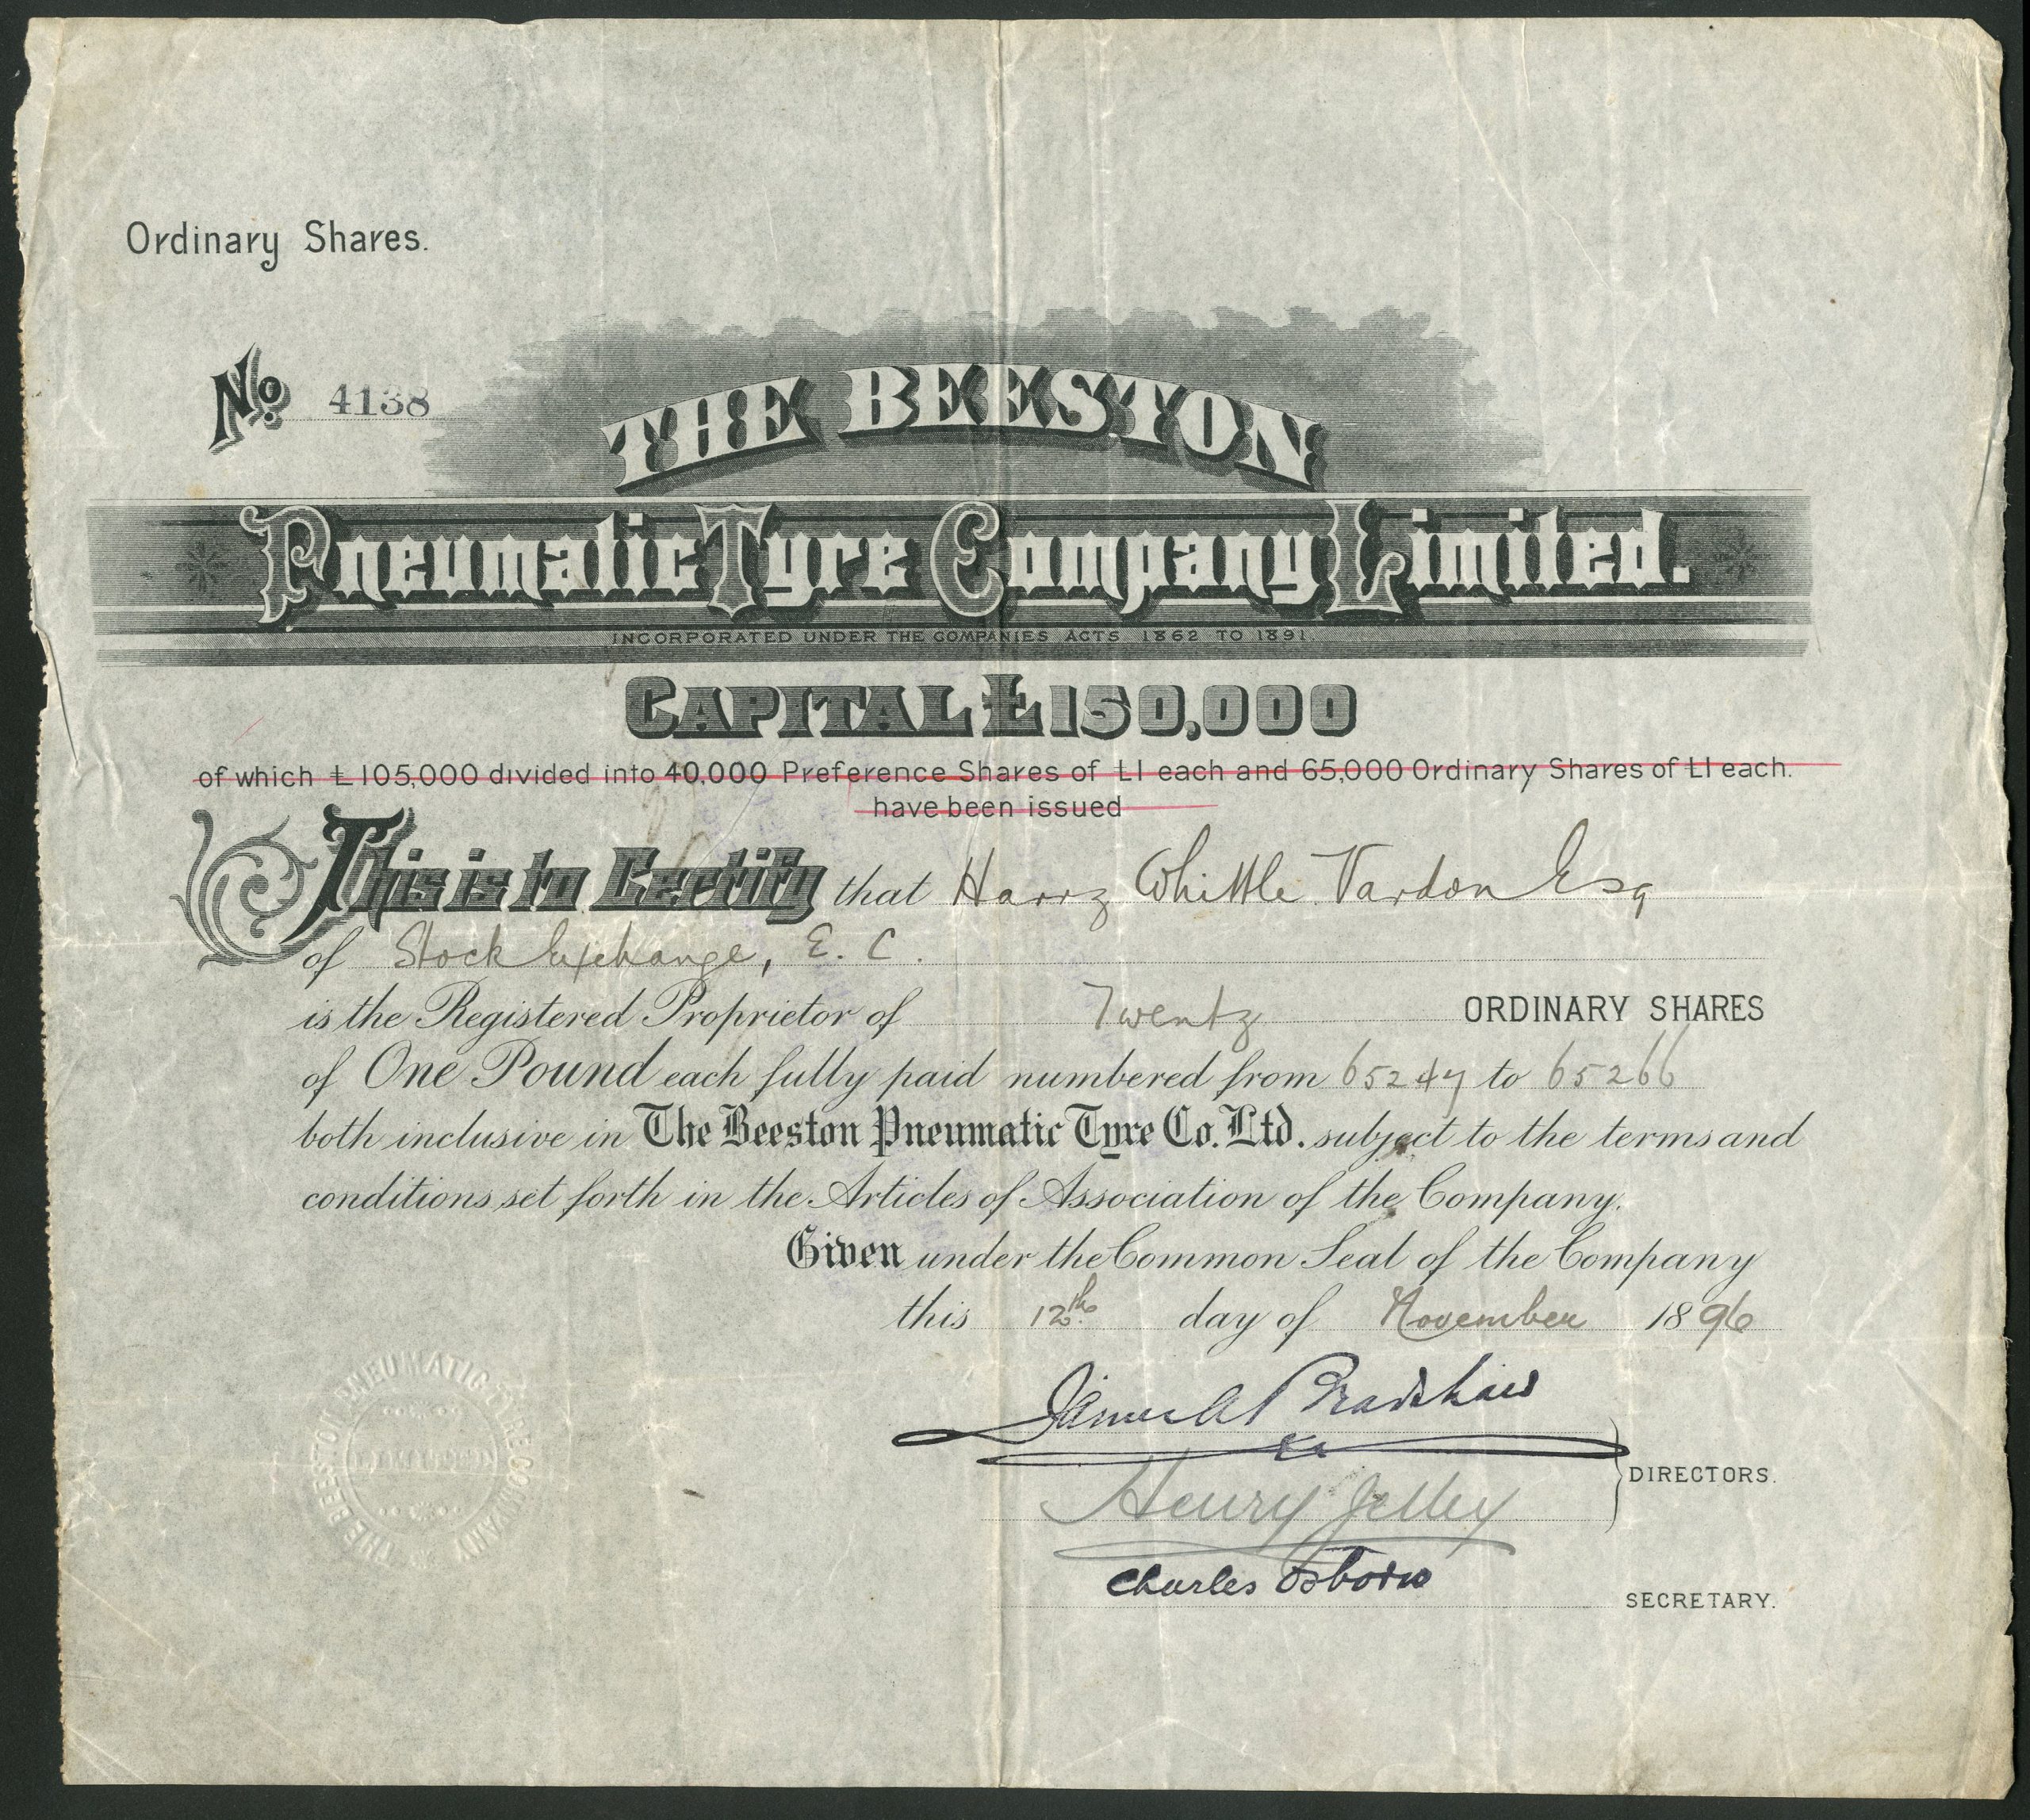 Ordinary Shares.
No. 4138
THE BEESTON
Pneumatic Tyre Company Limited.
INCORPORATED UNDER THE COMPANIES ACTS 1862 TO 1891.
CAPITAL £150,000
of which £105,000 divided into 40,000 Preference Shares of £1 each and 65,000 Ordinary Shares of £1 each.
have been issued
This is to Certify that Harry Whittle Vardon Esq
of Stock Exchange, E. C.
is the Registered Proprietor of Twenty ORDINARY SHARES
of One Pound each fully paid numbered from 65247 to 65266
both inclusive in The Beeston Pneumatic Tyre Co. Ltd. subject to the terms and
conditions set forth in the Articles of Association of the Company.
Given under the Common Seal of the Company
this 12th day of November 1896
James A Bradshaw
Henry Jelley
DIRECTORS.
Charles Osborn
SECRETARY.
THE BEESTON PNEUMATIC TYRE COMPANY
LIMITED